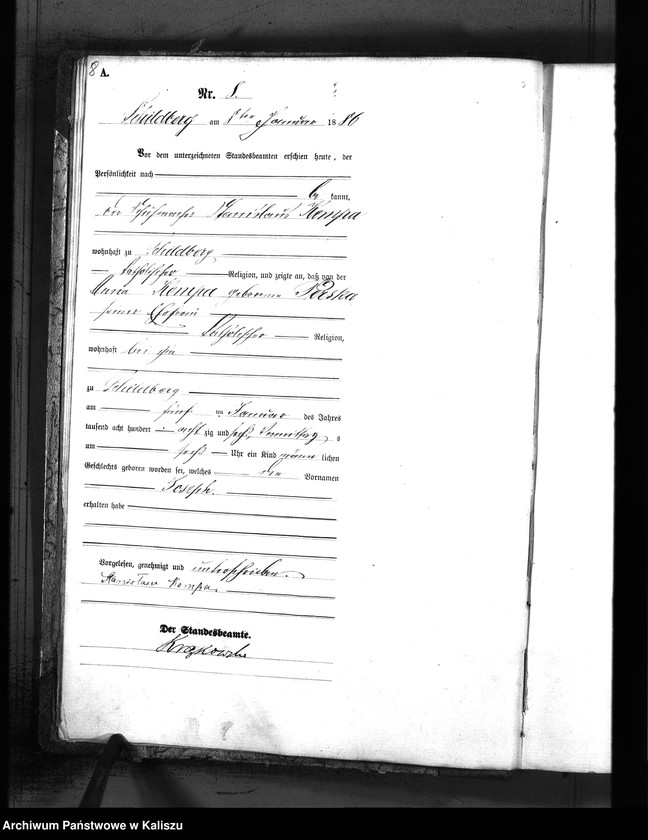 8 A.
Nr. 8.
Schildberg am 8ten Januar 1886
Vor dem unterzeichneten Standesbeamten erschien heute, der
Persönlichkeit nach
be kannt,
der Stanislaus Kempa
wohnhaft zu Schildberg
katholischer Religion, und zeigte an, daß von der
Maria Kempa geborenen
seiner Ehefrau
katholischer Religion,
wohnhaft bei ihm
zu Schildberg
am fünf ten Januar des Jahres
tausend acht hundert acht zig und sechs Vormittag s
um sechs Uhr ein Kind männ lichen
Geschlechts geboren worden sei, welches den Vornamen
Joseph.
erhalten habe
Vorgelesen, genehmigt und unterschrieben.
Stanislaus Kempa.
Der Standesbeamte.
Archiwum Państwowe w Kaliszu